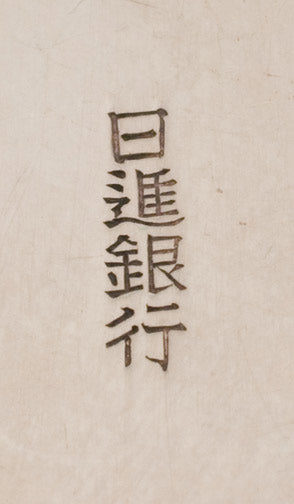 日進銀行